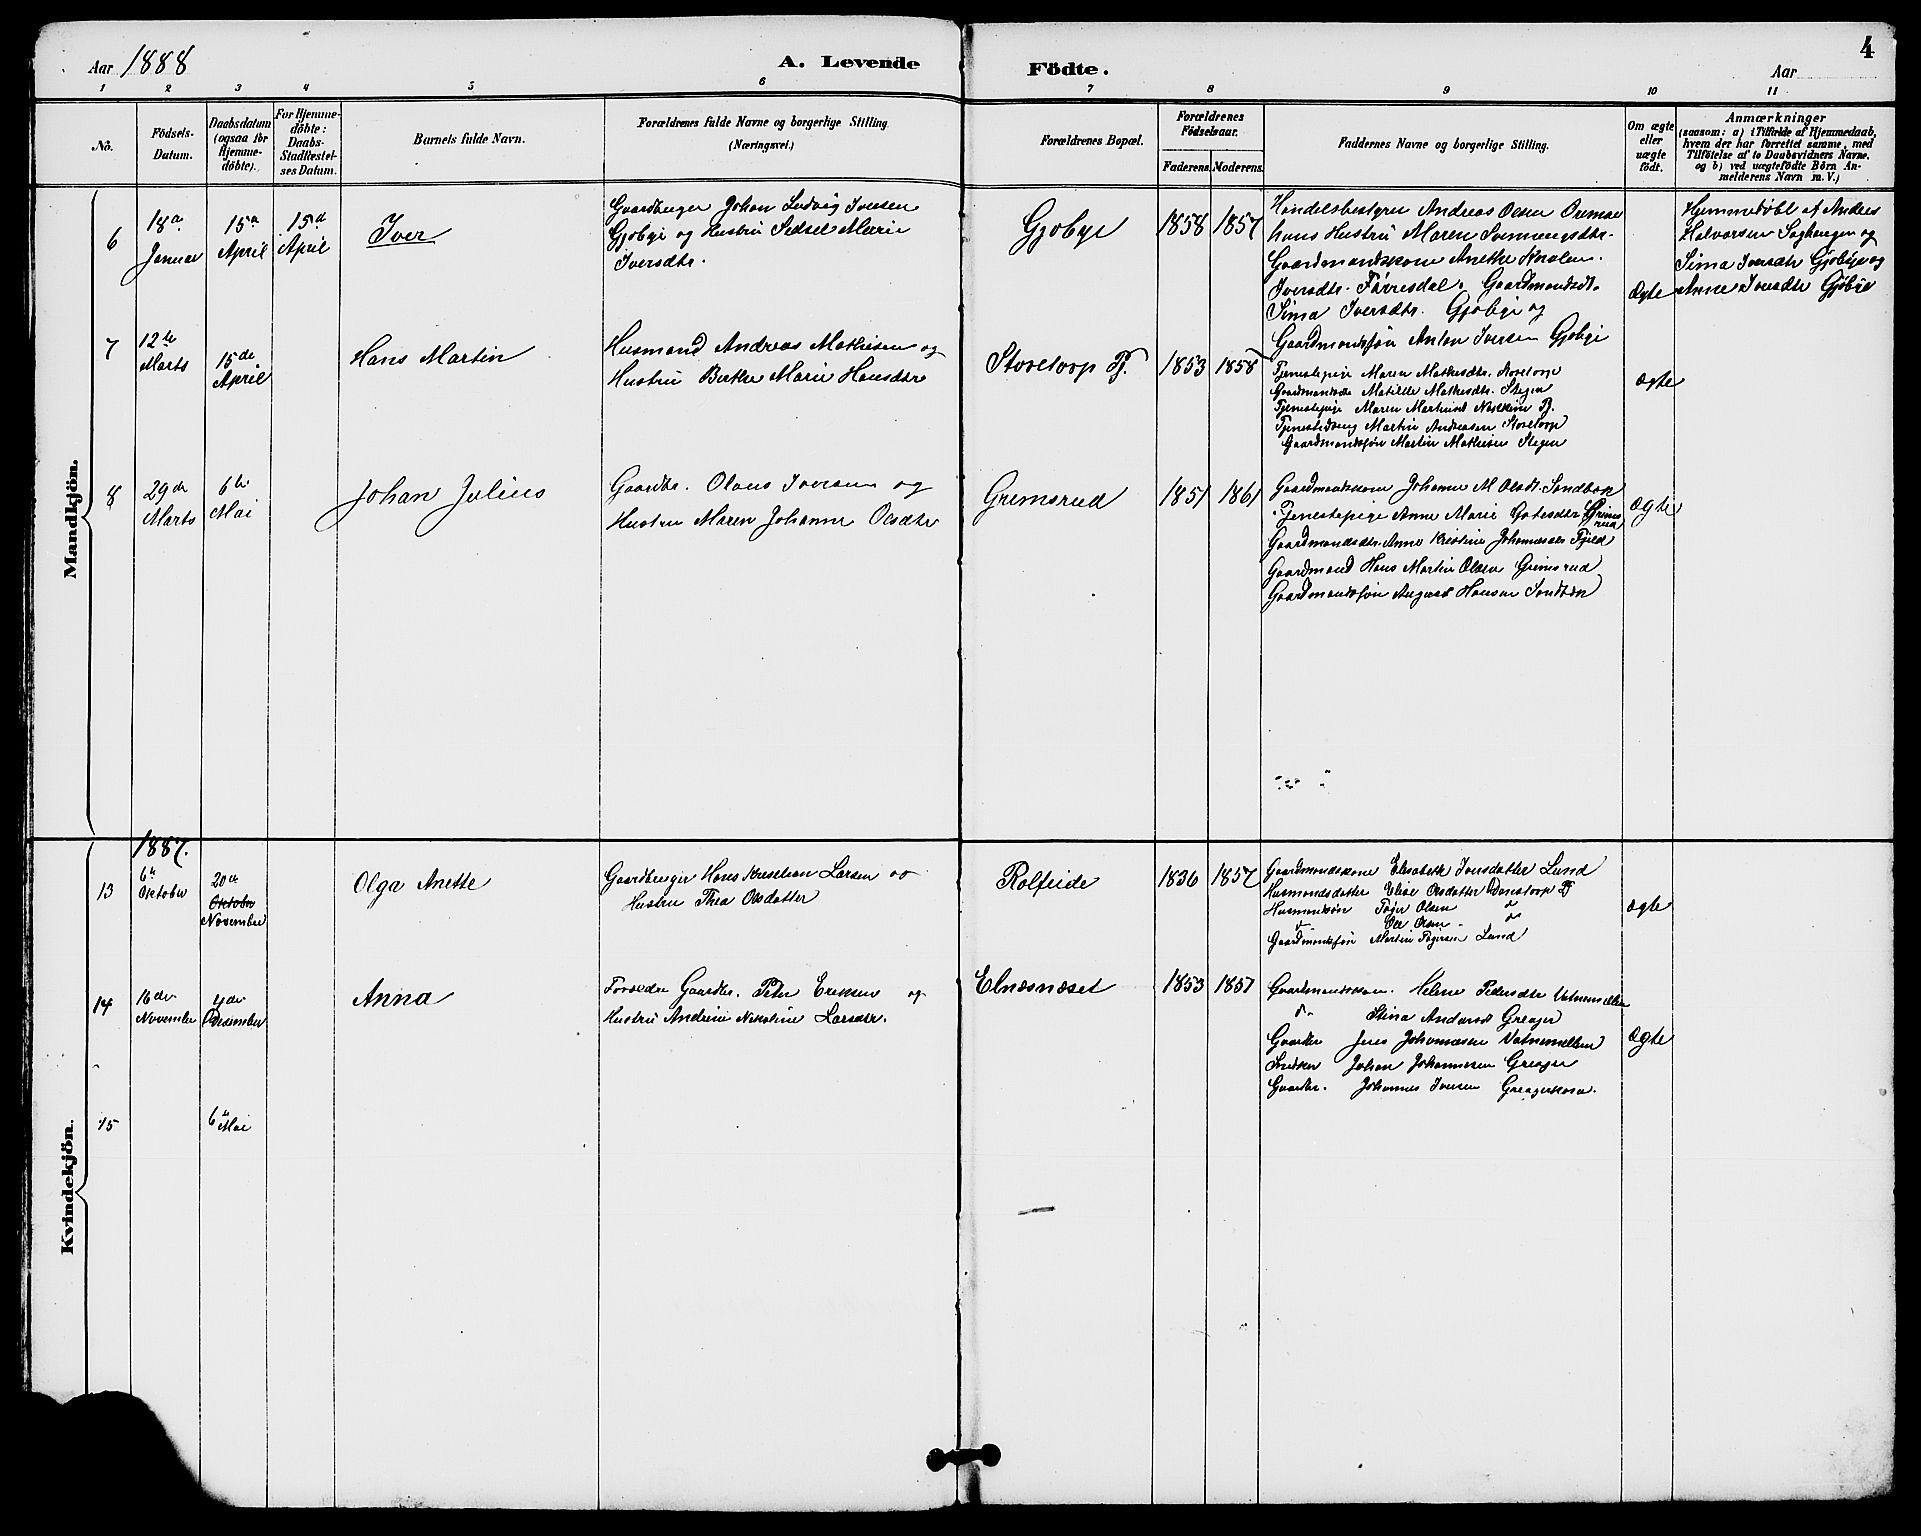 Aar 1888
A. Levende Födte.
Aar
4
1 2 3 4 5 6 7 8 9 10 11
No.
Födsels-
Datum.
Daabsdatum
(ogsaa for
Hjemme-
döbte).
For Hjemme-
döbte:
Daabs-
Stadfæstel-
ses Datum.
Barnets fulde Navn.
Forældrenes fulde Navne og borgerlige Stilling.
(Næringsvei.)
Forældrenes Bopæl.
Forældrenes
Födselsaar.
Faderens. Moderens.
Faddernes Navne og borgerlige Stilling.
Om ægte
eller
uægte
født.
Anmærkninger
(saasom: a) i Tilfælde af Hjemmedaab,
hvem der har forrettet samme, med
Tilföielse af to Daabsvidners Navne.
og b) ved uægtefödte Börn An-
melderens Navn m. V.)
Mandkjön.
6
18a
Januar
15a
April
15d
April
Iver
Gaardbruger Johan Ludvig Iversen
Gjøbye og Hustru Sidsel Marie
Iversdtr.
Gjøbye
1858 1857
Handelsbestyrer Andreas Olsen Oremar
hans Hustru Maren Svenningsdtr.
Gaardmandskone Anethe
Iversdtr. Førresdal. Gaardmandsdt.
Sima Iversdtr. Gjøbye og
Gaardmandssøn Anton Iversen Gjøbye
Ægte
Hjemmedøbt af Anders
Halvorsen Saghaugen og
Sima Iversdtr Gjøbye og
Anne Iversdtr Gjøbye
7
12te
Marts
15de
April
Hans Martin
Husmand Andreas Mathisen og
Hustru Berthe Marie Hansdtr
Storetorp Pl.
1853 1858
Tjenestepige Maren Mathisdtr. Storetorp
Matilde Mathisdtr. Stegen
Tjenestepige Maren
Tjenestedreng Martin Andreasen Storetorp
Gaardmandssøn Martin Mathisen Stegen
Ægte
8
29de
Marts
6te
Mai
Johan Julius
Gaardbr. Olaus Iversen og
Hustru Maren Johanne Olsdtr
Grimsrud
1851 1861
Gaardmandskone Johanne M Olsdt. Sandbæk
Tjenestepige Anne Marie Grims
rud
Gaardmandsdtr. Anne Kristine
Gaardmand Hans Martin Olsen Grimsrud
Gaardmandssøn August Hansen Sandbæk
Ægte
Kvindekjön.
1887.
13
6te
Oktober
20de
Oktobr
November
Olga Anette
Gaardbruger Hans Kristian Larsen og
Hustru Thea Olsdatter
Rolfeide
1836 1857
Gaardmandskone Elisabeth Lund
Husmandsdatter Elise Olsdatter
Husmandssøn Olsen do
do Ole Olsen do
Gaardmandssøn Martin Lund
Ægte
14
16de
November
4de
Desember
Anna
Forældre Gaardbr. Peter Eriksen og
Hustru Andrine Nikoline Larsdtr.
Elnæsnæset
1853 1857
Gaardmandskone. Helene Pedersdtr Vatnemellem
do Stina Andersd Greager
Gaardbr Jens Johannesen Vatnemellem
Snedker Johan Johannesen Greager
Gaardbr. Johannes Iversen
Ægte
15
6te Mai